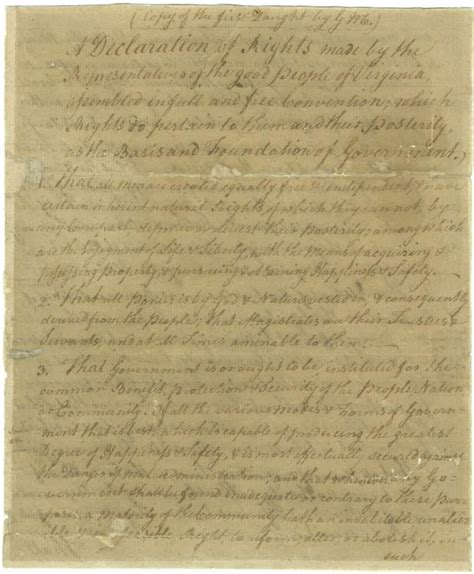 (Copy of the first Daught by G M.)
A Declaration of Rights made by the
Representatives of the good People of Virginia,
assembled in full and free Convention; which
Rights do pertain to them and their Posterity,
as the Basis and Foundation of Government.
1. That all men are created equally free & independent, & have
certain inherent natural Rights, of which they cannot, by
any Compact, deprive or divest their Posterity; among which
are the Enjoyment of Life & Liberty, with the Means of acquiring &
possessing Property, & pursueing & obtaining Happiness & Safety.
2. That all Power is by God & Nature vested in, & consequently
derived from the People; that Magistrates are their Trustees &
Servants, and at all Times amenable to them.
3. That Government is or ought to be instituted for the
common Benefit, protection & Security of the People, Nation
or Community. Of all the various modes & Forms of Govern-
ment that is best, which is capable of producing the greatest
Degree of Happiness & Safety, & is most effectually secured against
the Danger of mal-administration; and that whenever any Go-
vernment shall be found inadequate or contrary to these pur-
poses, a majority of the Community hath an indubitable, unalien-
able Right to reform, alter, or abolish it, in
such